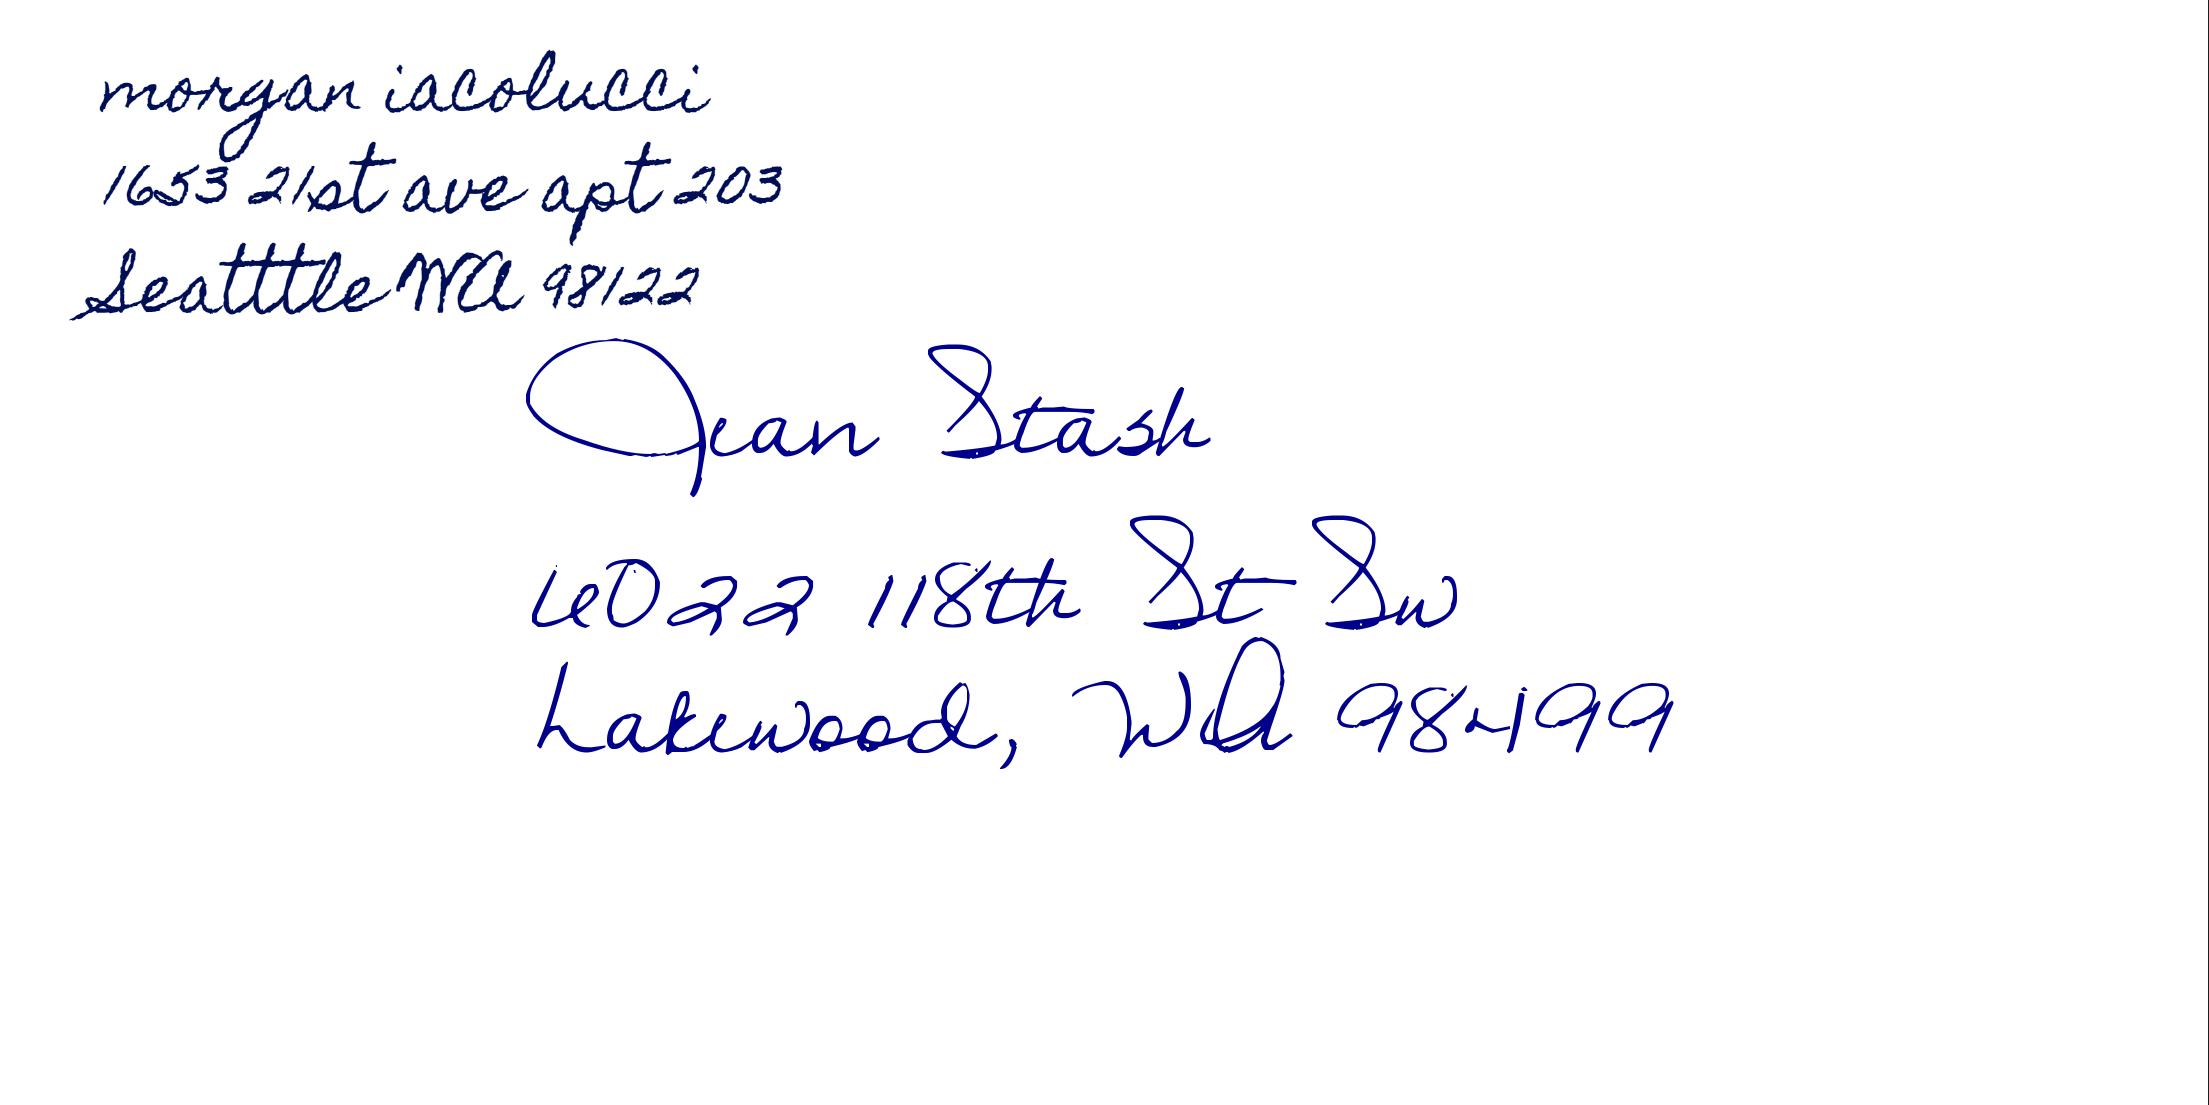 morgan iacolucci
1653 21st ave apt 203
Seatttle WA 98122
Jean Stash
6022 118th St Sw
Lakewood, WA 98499